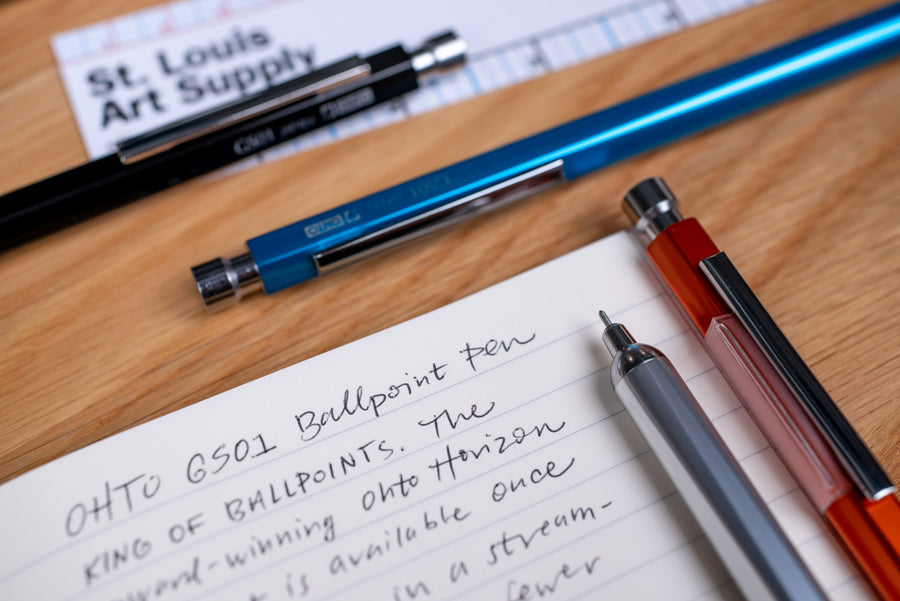 St. Louis
Art Supply
GS01 JAPAN
OHTO
OHTO GS01 Ballpoint Pen
KING OF BALLPOINTS. The
award-winning Ohto Horizon
is available once
in a stream-
fewer